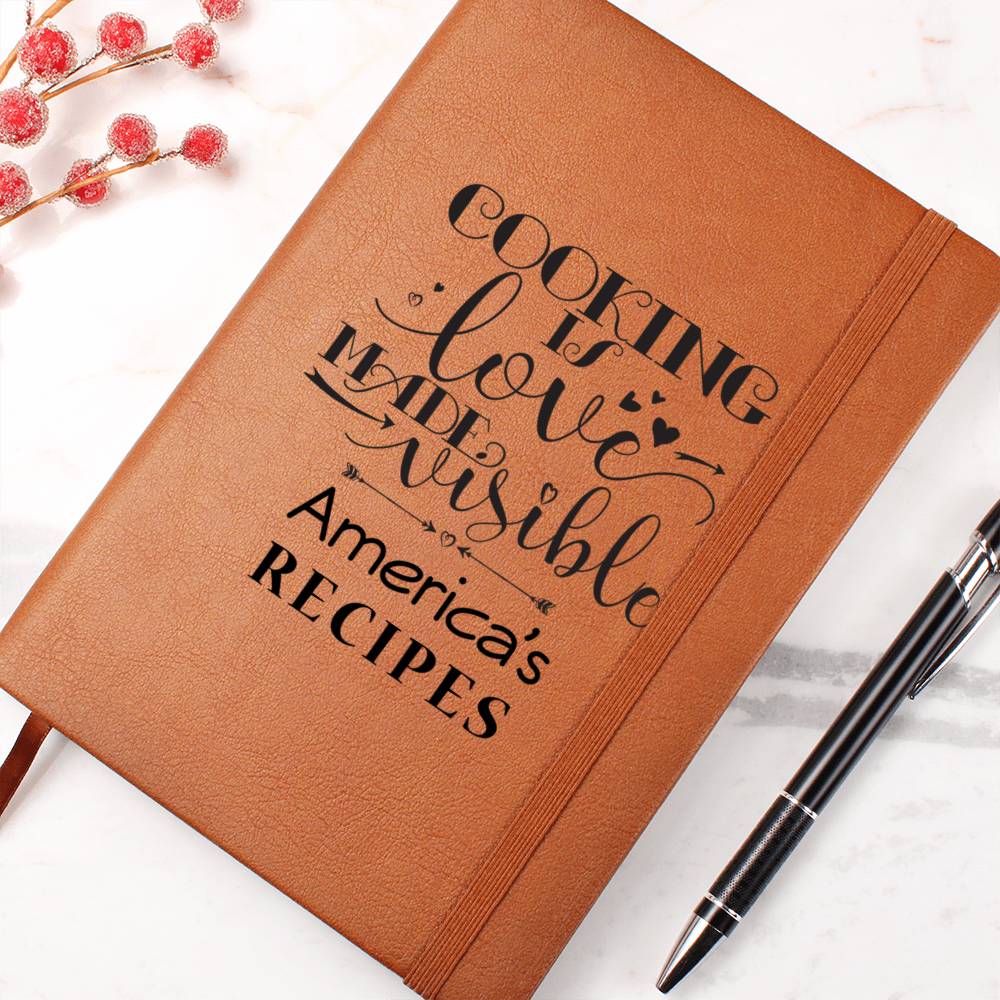 COOKING
IS
love
MADE
visible
America's
RECIPES